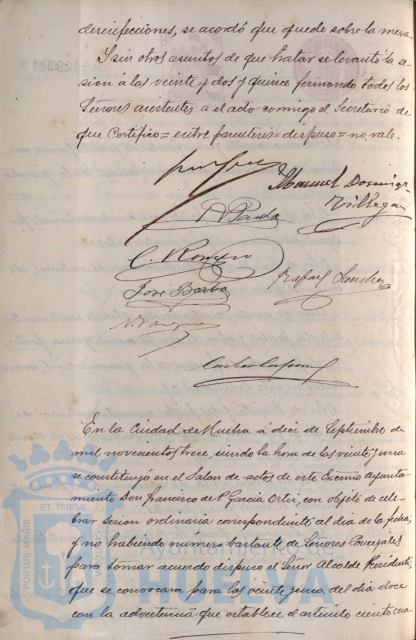 desinfecciones, se acordó que quede sobre la mesa.
Y sin otros asuntos de que tratar se levantó la se-
sion á las veinte y dos y quince firmando todos los
Señores asistentes a el acto conmigo el Secretario de
que Certifico = entre parentesis = dispuso = no vale.
Manuel Domingz
Villegas
C. Romero
Rafael Sanchez
José Barba
En la Ciudad de Huelva a diez de Septiembre de
mil novecientos trece, siendo la hora de las veinte y una
se constituyó en el Salon de actos de este Excmo Ayunta-
miento Don Francisco de P. Garcia Ortiz, con objeto de cele-
brar sesion ordinaria correspondiente al dia de la fecha,
y no habiendo numero bastante de Señores Concejales
para tomar acuerdo dispuso el Señor Alcalde Presidente
que se convocara para las veinte y una del dia doce
con la advertencia que establece el articulo ciento cua-
PORTUS MARIS ET TERRAE
Ayuntamiento de
HUELVA